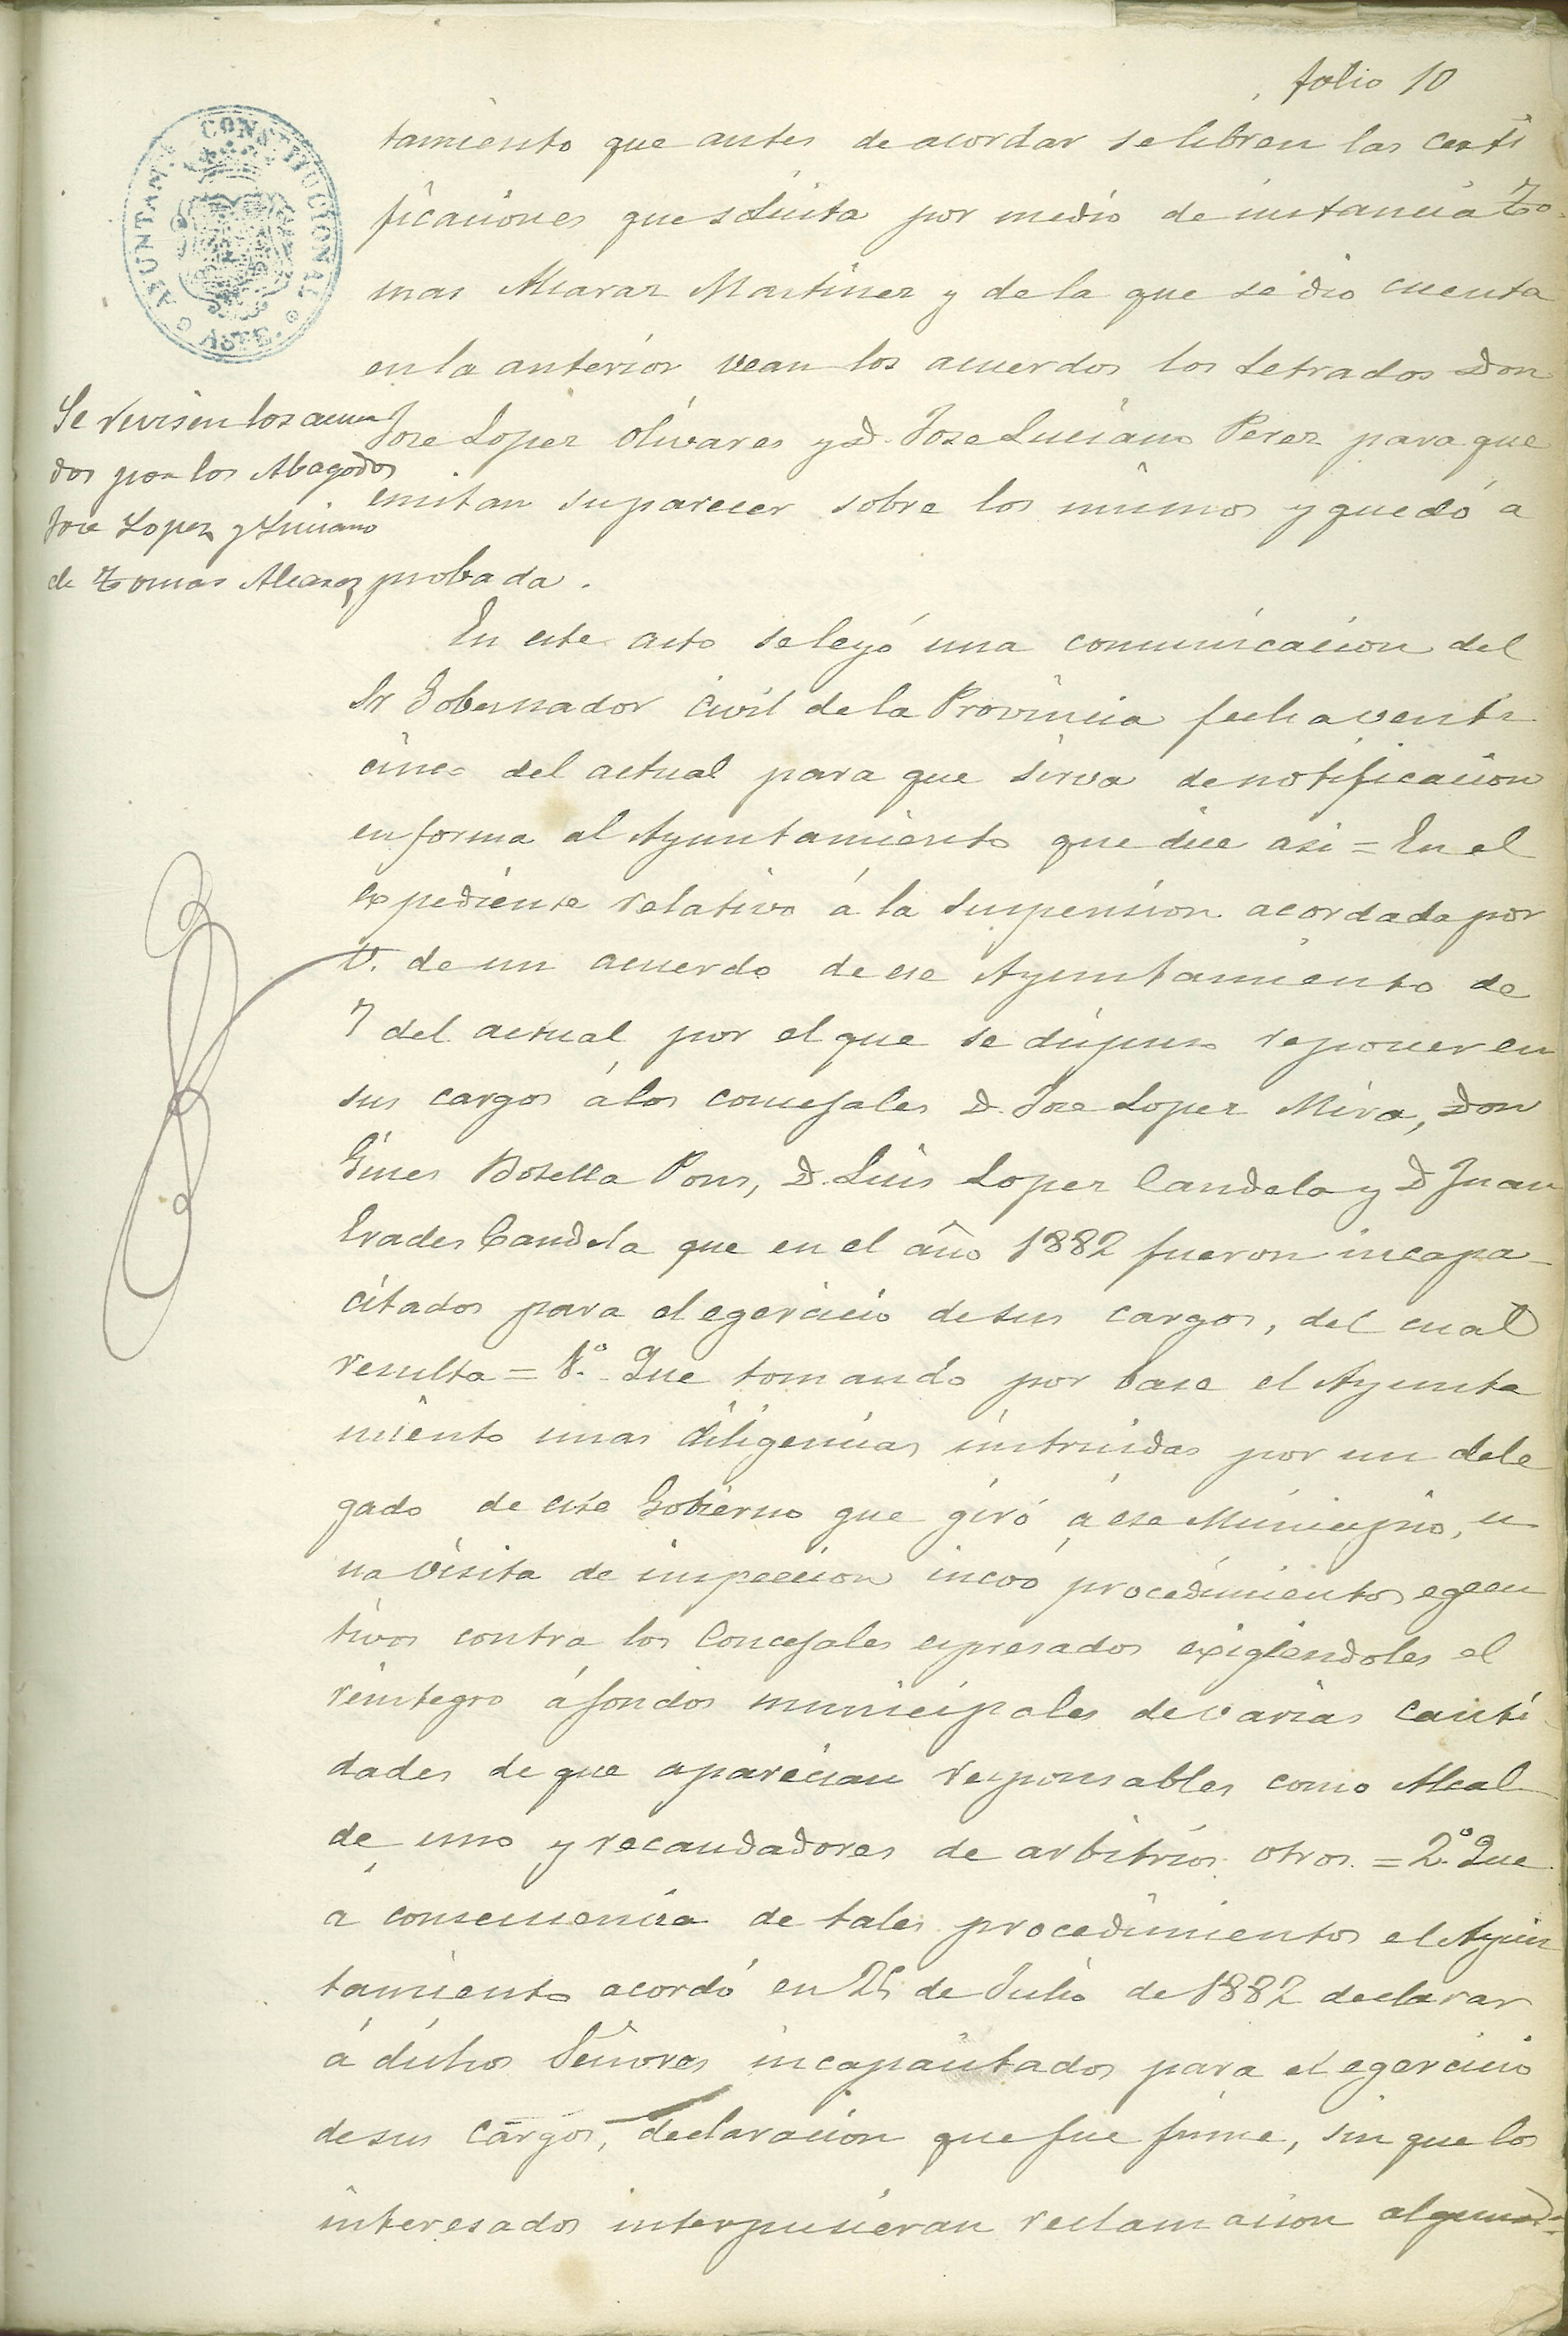 folio 10
AYUNTAM CONSTITUCIONAL
ASPE
tamiento que antes de acordar se libren las certi
ficaciones que solicita por medio de instancia To-
mas Alcaraz Martinez y de la que se dio cuenta
en la anterior vean los acuerdos los Letrados Don
Jose Lopez Olivares y D. Jose Luciano Perez para que
emitan su parecer sobre los mismos y quedó a
probada.
Se revisen los acuer
dos por los Abogados
Jose Lopez y Luciano
de Tomas Alcaraz
En este acto se leyó una comunicacion del
Sr Gobernador Civil de la Provincia fecha venti
cinco del actual para que sirva de notificacion
en forma al Ayuntamiento que dice asi = En el
expediente relativo á la suspension acordada por
V. de un acuerdo de ese Ayuntamiento de
7 del actual por el que se dispuso reponer en
sus cargos á los concejales D. Jose Lopez Mira, Don
Gines Botella Pons, D. Luis Lopez Candela y D Juan
Erades Candela que en el año 1882 fueron incapa-
citados para el egercicio de sus cargos, del cual
resulta = 1.º Que tomando por base el Ayunta
miento unas diligencias instruidas por un dele
gado de este Gobierno que giró á ese Municipio, u
na visita de inspeccion incoó procedimientos egecu
tivos contra los Concejales espresados exigiendoles el
reintegro á fondos municipales de varias canti
dades de que aparecian responsables como Alcal-
de uno y recaudadores de arbitrios otros = 2.º Que
a consecuencia de tales procedimientos el Ayun
tamiento acordó en 25 de Julio de 1882 declarar
á dichos Señores incapacitados para el egercicio
de sus cargos, declaracion que fue firme, sin que los
interesados interpusieran reclamacion alguna=